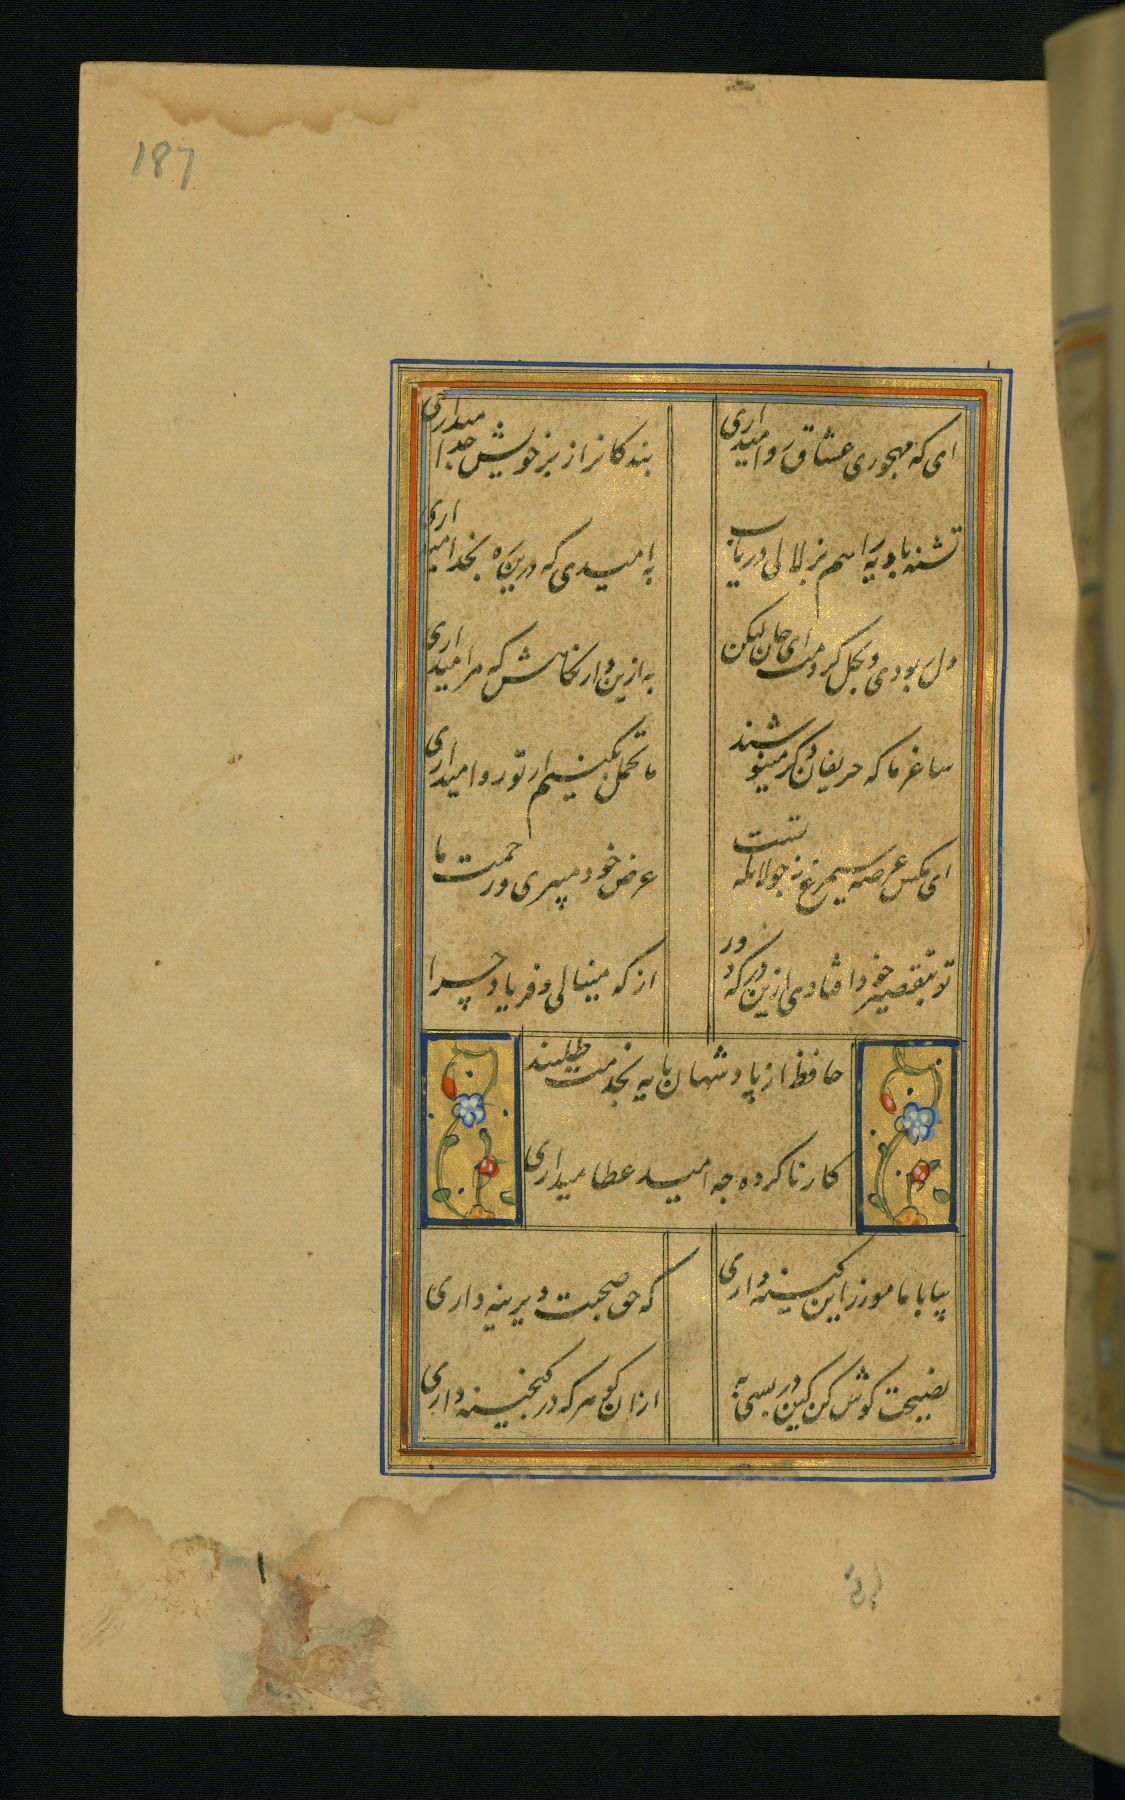 187
ای که مهجوری عشاق روا میداری
بندکانرا ز بر خویش جدا میداری
تشنه بادیه را هم بزلالی دریاب
به امیدی که درین ره بخدا میداری
دل ربودی و بحل کردمت ای جان لیکن
به ازین دار نکاهش که مرا میداری
ساغر ما که حریفان دکر مینوشند
ما تحمل نکنیم ار تو روا میداری
ای مکس عرصه سیمرغ نه جولانکه تست
عرض خود میبری و زحمت ما
تو بتقصیر خود افتادی ازین در که دور
از که مینالی و فریاد چرا
حافظ از پادشهان پایه بخدمت طلبند
کار ناکرده چه امید عطا میداری
بیا با ما مورز این کینه داری
که حق صحبت دیرینه داری
نصیحت کوش کن کین در بسی به
ازان کوهر که در کنجینه داری